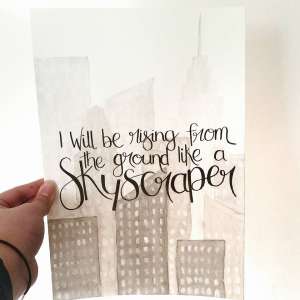 I will be rising from
the ground like a
Skyscraper